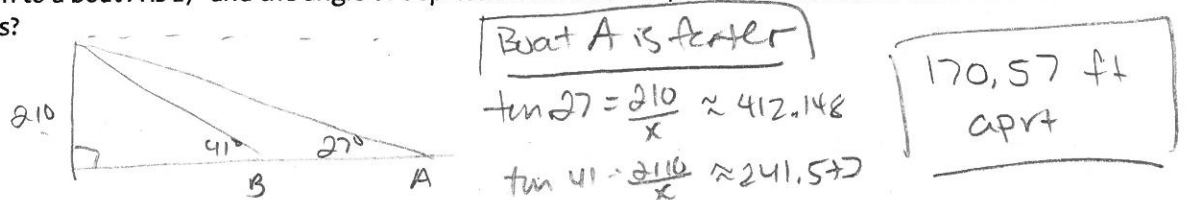 s?
210
41°
27°
B
A
Boat A is farther
tan 27 = 210/x ≈ 412.148
tan 41 = 210/x ≈ 241.577
170,57 ft
aprt